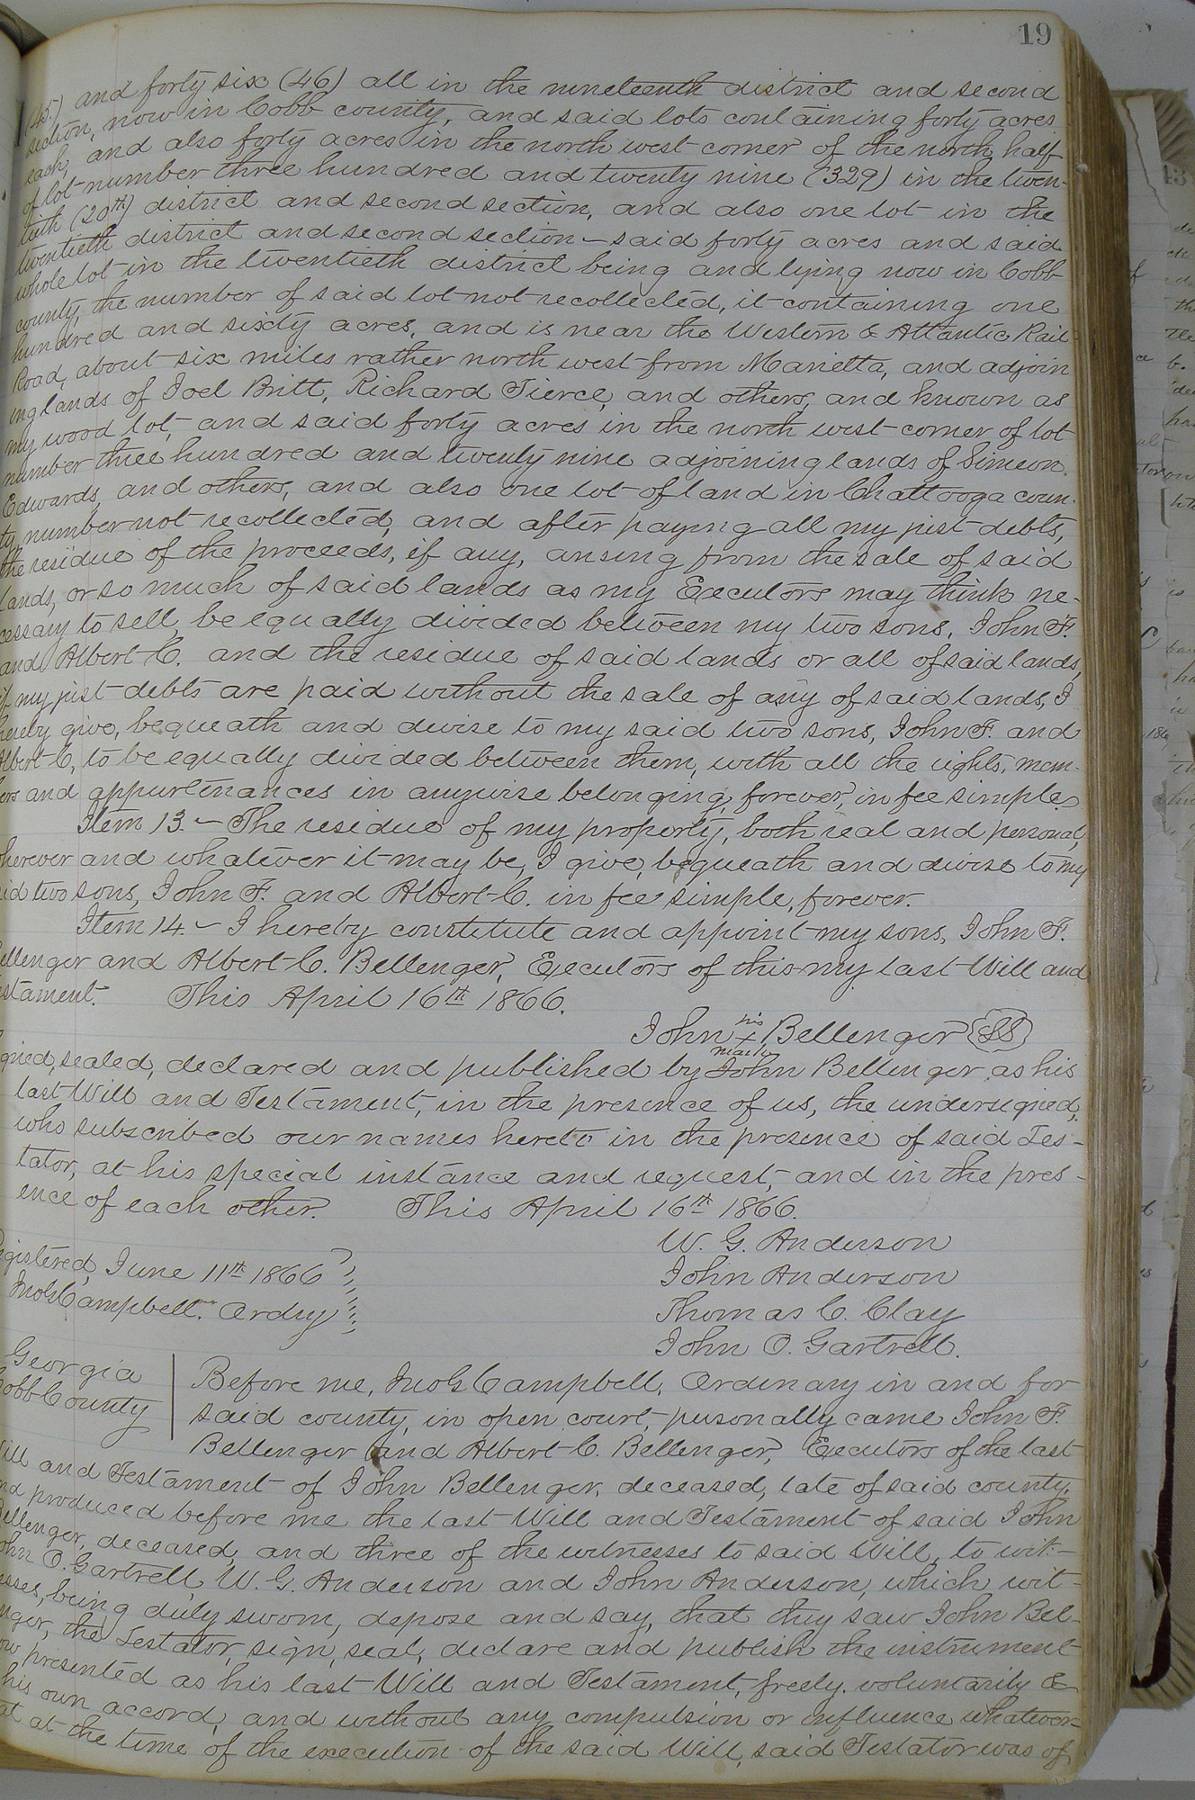 19
(45) and forty six (46) all in the nineteenth district and second
section, now in Cobb county, and said lots containing forty acres
each, and also forty acres in the north west corner of the north half
of lot number three hundred and twenty nine (329) in the twen-
tieth (20th) district and second section, and also one lot in the
twentieth district and second section - said forty acres and said
whole lot in the twentieth district being and lying now in Cobb
county, the number of said lot not recollected, it containing one
hundred and sixty acres, and is near the Western & Atlantic Rail-
Road, about six miles rather north west from Marietta, and adjoin
ing lands of Joel Britt, Richard Pierce, and others, and known as
my wood lot, and said forty acres in the north west corner of lot
number three hundred and twenty nine adjoining lands of Simeon
Edwards, and others, and also one lot of land in Chattooga coun-
ty, number not recollected, and after paying all my just debts,
the residue of the proceeds, if any, arising from the sale of said
lands, or so much of said lands as my Executors may think ne-
cessary to sell, be equally divided between my two sons, John F.
and Albert C. and the residue of said lands or all of said lands,
if my just debts are paid without the sale of any of said lands, I
hereby give, bequeath and devise to my said two sons, John F. and
Albert C. to be equally divided between them, with all the rights, mem-
ers and appurtenances in anywise belonging, forever, in fee simple.
Item 13 - The residue of my property, both real and personal,
wherever and whatever it may be, I give, bequeath and devise to my
aid two sons, John F. and Albert C. in fee simple, forever.
Item 14 - I hereby constitute and appoint my sons, John F.
ellenger and Albert C. Bellenger, Executors of this my last Will and
stament. This April 16th 1866.
John his X mark Bellenger LS
gned, sealed, declared and published by John Bellenger as his
last Will and Testament, in the presence of us, the undersigned,
who subscribed our names hereto in the presence of said Tes-
tator, at his special instance and request, and in the pres-
ence of each other. This April 16th 1866.
W. G. Anderson
John Anderson
Thomas C. Clay
John O. Gartrell.
egistered, June 11th 1866
Jno G Campbell. Ordry
Georgia
Cobb County
Before me, Jno G Campbell, Ordinary in and for
said county, in open court, personally came John F.
Bellenger and Albert C. Bellenger, Executors of the last
Will and Testament of John Bellenger, deceased, late of said county,
and produced before me the last Will and Testament of said John
Bellenger, deceased, and three of the witnesses to said Will, to wit:-
John O. Gartrell, W. G. Anderson and John Anderson, which wit-
esses, being duly sworn, depose and say, that they saw John Bel-
enger, the Testator, sign, seal, declare and publish the instrument
now presented as his last Will and Testament, freely, voluntarily &
his own accord, and without any compulsion or influence whatever
at at the time of the execution of the said Will, said Testator was of